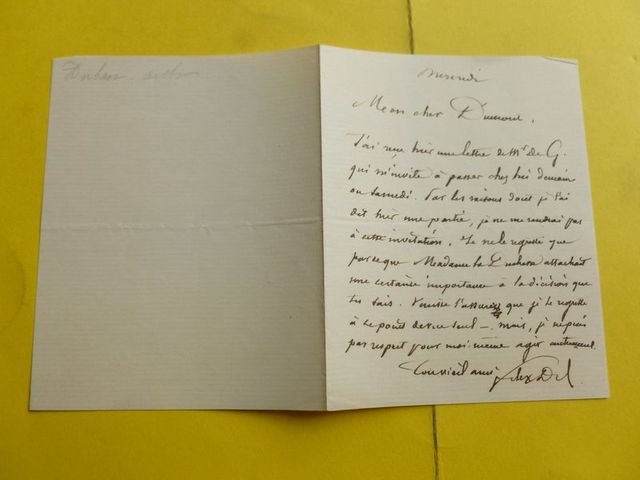 Mon cher
J'ai reçu hier une lettre de Mr de G.
qui m'invite à passer chez lui demain
ou Samedi. Par les raisons dont je t'ai
dit hier une partie, je ne me rendrai pas
à cette invitation. Je ne le regrette que
parceque Madame la attachait
une certaine importance à la décision que
tu sais. l'assurer que je le regrette
à ce point de vue seul — mais, je ne puis
par respect pour moi même agir autrement.
Ton vieil ami